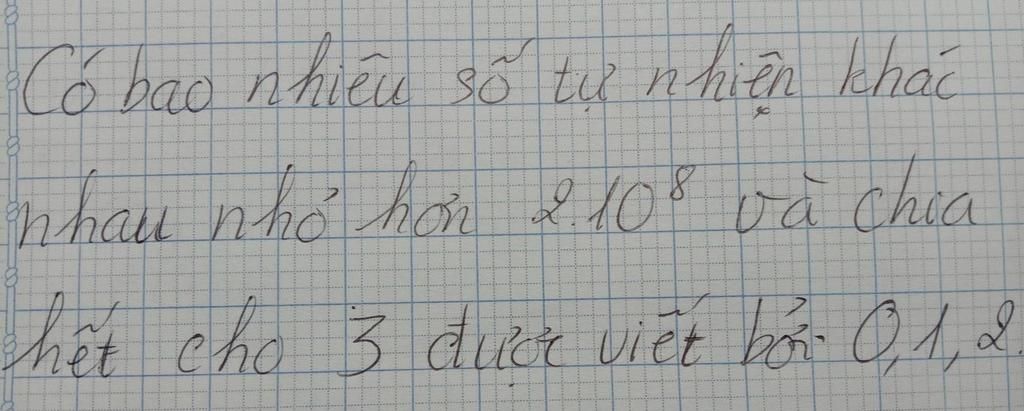 Có bao nhiêu số tự nhiện khác
nhau nhỏ hơn 2.10⁸ và chia
hết cho 3 được viết bởi 0,1,2.